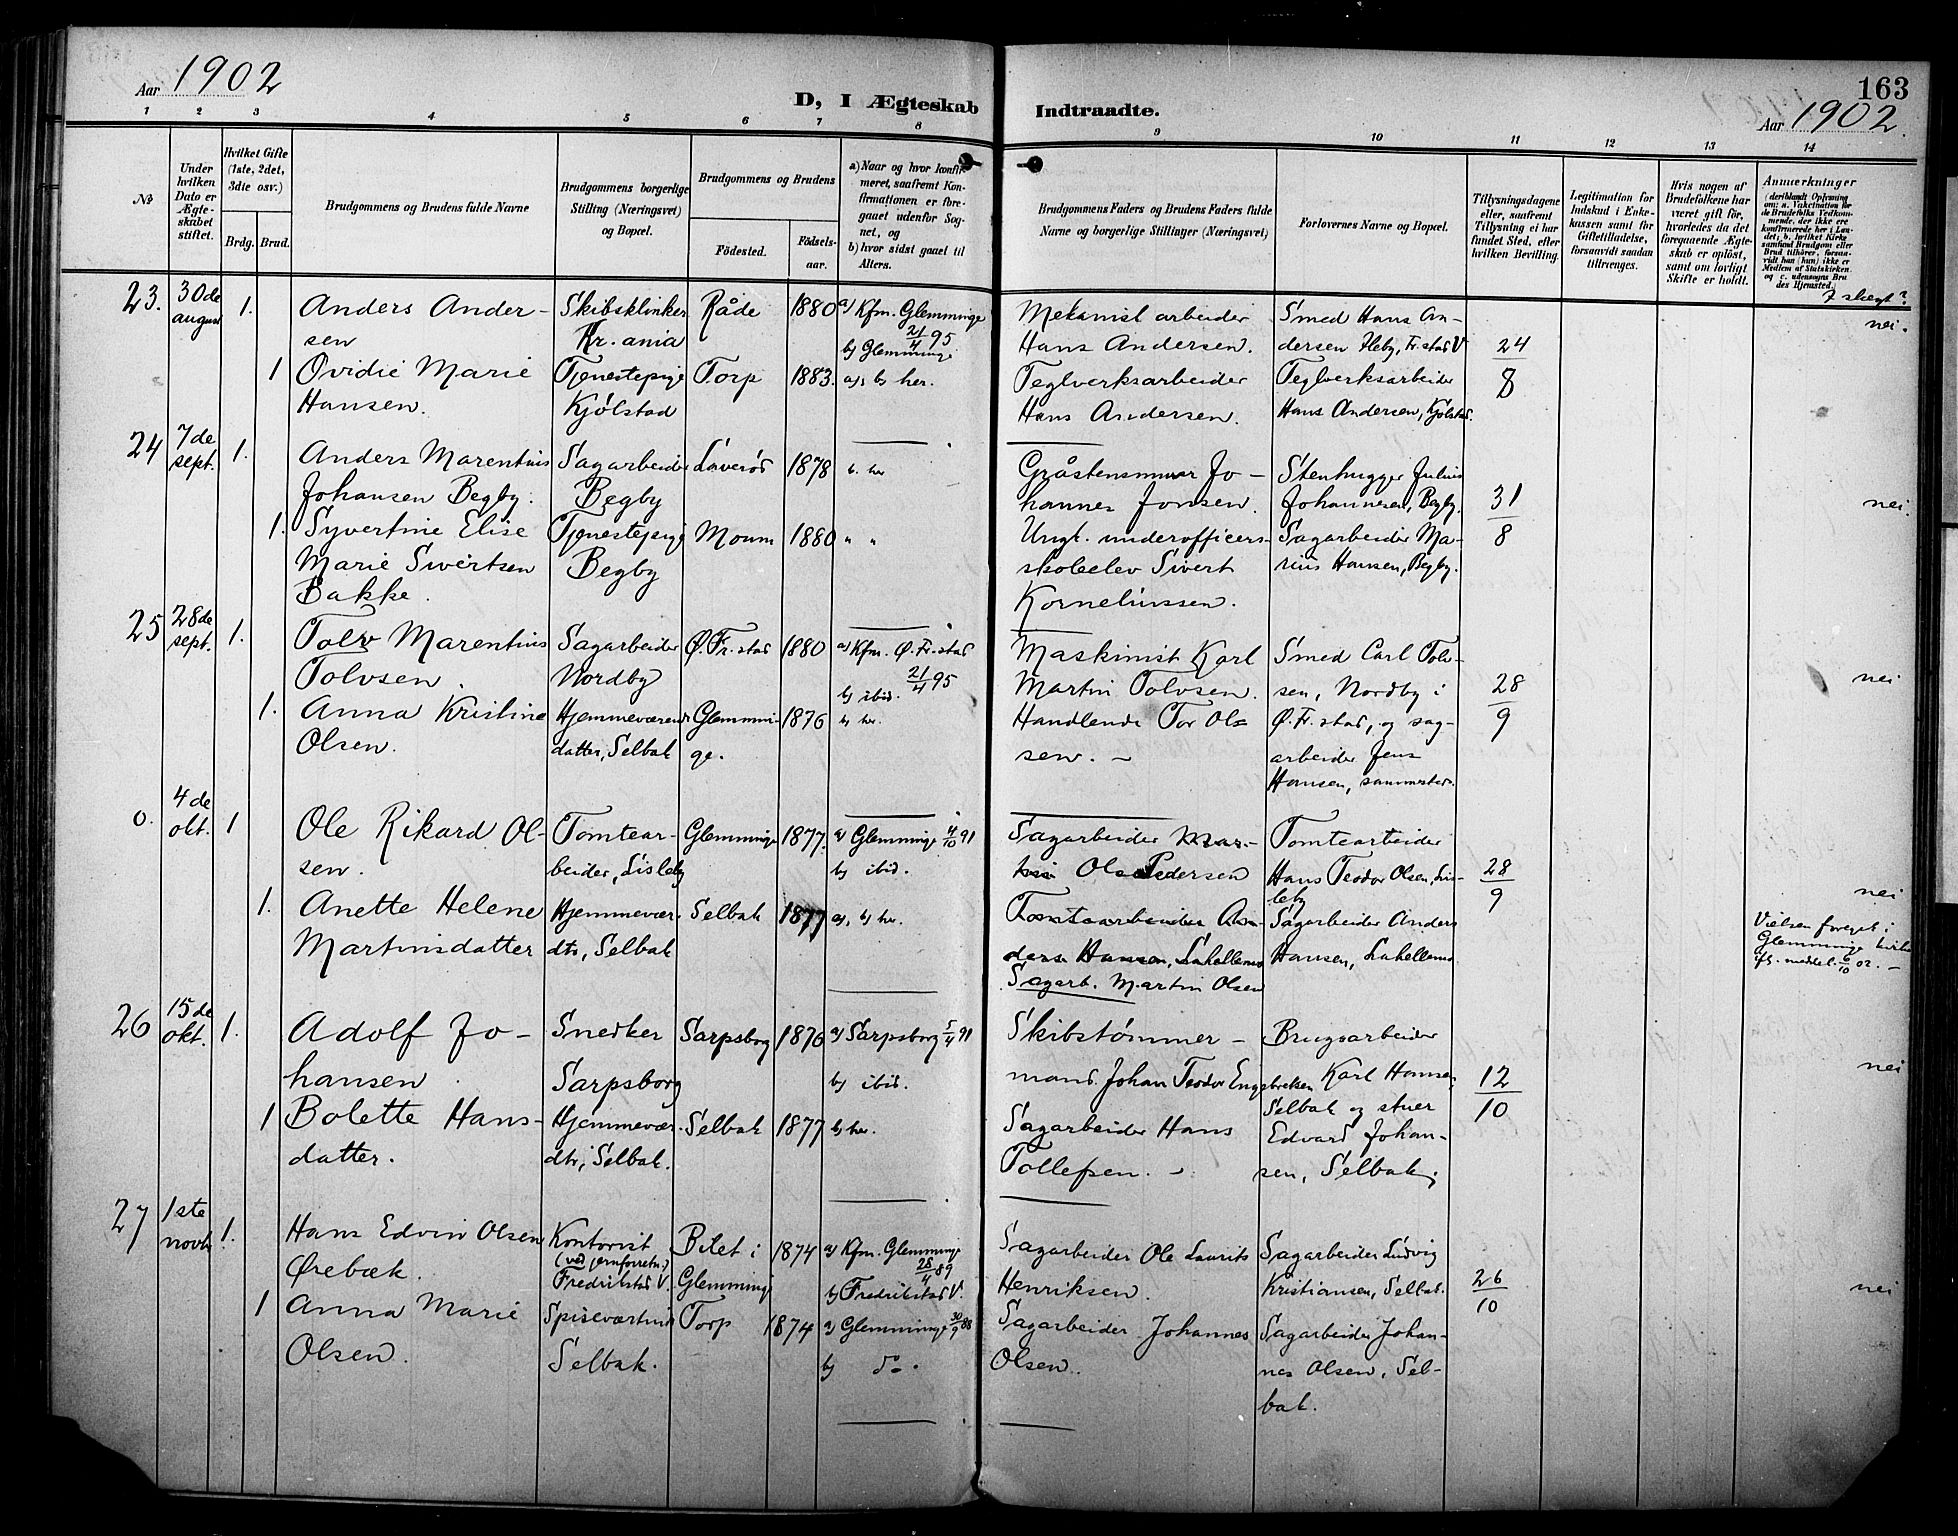 Aar 1902
D, I Ægteskab
1 2 3 4 5 6 7 8
No
Under hvilken Dato er Ægteskabet stiftet.
Hvilket Gifte (1ste, 2det, 3die osv.)
Brdg. Brud.
Brudgommens og Brudens fulde Navne
Brudgommens borgerlige Stilling (Næringsvei) og Bopæl.
Brudgommens og Brudens
Födested. Födsels-aar.
a) Naar og hvor konfirmeret, saafremt Konfirmationen er foregaaet udenfor Sognet, og
b) hvor sidst gaaet til Alters.
23. 30de august 1. Anders Andersen Skibsklinker Kr.ania Råde 1880 a) Kfm. Glemminge 21/4 95 b) Glemminge
1 Ovidie Marie Hansen. Tjenestepige Kjölstad Torp 1883. a), b) her.
24 7de sept. 1. Anders Marentius Johansen Begby. Sagarbeider Begby 1878 b. her
1. Syvertine Elise Marie Sivertsen Bakke. Tjenestepige Begby Moum 1880 " "
25 28de sept. 1. Tolv Marentius Tolvsen. Sagarbeider Nordby Ø. Fr.stad 1880 a) Kfm. Ø. Fr.stad 21/4 95 b) ibid.
1. Anna Kristine Olsen. Hjemmeværende datter, Selbak Glemminge. 1876 b) her.
0. 4de okt. 1 Ole Rikard Olsen. Tomtearbeider, Lisleby Glemminge 1877. a) Glemminge 4/10 91 b) ibid.
1. Anette Helene Martinsdatter Hjemmevær. dtr, Selbak Selbak 1877 a), b) her.
26 15de okt. 1. Adolf Johansen Snedker Sarpsborg Sarpsborg 1876 a) Sarpsborg 5/4 91 b) ibid.
1 Bolette Hansdatter. Hjemmevær. dtr, Selbak. Selbak 1877 b) her.
27 1ste novb. 1. Hans Edvin Olsen Ørebæk. Kontorist (ved jernforretn.) Fredrikstad V. Bilet i Glemminge 1874 a) Kfm. Glemminge 28/4 89 b) Fredrikstad V.
1 Anna Marie Olsen. Spiseværtinde Selbak. Torp 1874 a) Glemminge 30/9 88 b) do.
163
Indtraadte.
Aar 1902.
9 10 11 12 13 14
Brudgommens Faders og Brudens Faders fulde Navne og borgerlige Stillinger (Næringsvei)
Forlovernes Navne og Bopæl.
Tillysningsdagene eller, saafremt Tillysning ei har fundet Sted, efter hvilken Bevilling.
Legitimation for Indskud i Enkekassen samt for Giftetilladelse, forsaavidt saadan tiltrænges.
Hvis nogen af Brudefolkene har været gift för, hvorledes da det foregaaende Ægteskab er oplöst, samt om lovligt Skifte er holdt.
Anmærkninger (deriblandt Oplysning om: a. Vakcination for de Brudefolks Vedkommende, der ikke ere konfirmerede her i Landet; b. hvilket Kirkesamfund Brudgom eller Brud tilhörer, forsaavidt han (hun) ikke er Medlem af Statskirken og c. udensogns Brudes Hjemsted.)
I slegt?
Mekanist arbeider Hans Andersen. Smed Hans Andersen Fr.stad V 24/8 nei.
Teglverksarbeider Hans Andersen. Teglverksarbeider Hans Andersen, Kjölstad.
Johannes Jonsen. Stenhugger Julius Johannesen, Begby. 31/8 nei.
Ungt. underofficersskoleelev Sivert Korneliussen. Sagarbeider Marius Hansen, Begby.
Maskinist Karl Martin Tolvsen. Smed Carl Tolvsen, Nordby i Ø. Fr.stad, og sagarbeider Jens Hansen, sammesteds. 28/9 nei
Handlende Tor Olsen. –
Sagarbeider Ole Pedersen Tomtearbeider Hans Teodor Olsen, Lisleby 28/9 nei
Tomtearbeider Anders Hansen, Lahellemo Sagarbeider Anders Hansen, Lahellemo.
Sagarb. Martin Olsen
Vielsen foreget i Glemminge kirke fl. meddel. 6/10 02. –
Skibstömmermand. Johan Teodor Engebretsen Brugsarbeider Karl Hansen, Selbak og stuer Edvard Johansen, Selbak. 12/10 nei
Sagarbeider Hans Tollefsen. –
Sagarbeider Ole Laurits Henriksen. Sagarbeider Ludvig Kristiansen, Selbak. 26/10 nei
Sagarbeider Johannes Olsen. Sagarbeider Johannes Olsen, Selbak.